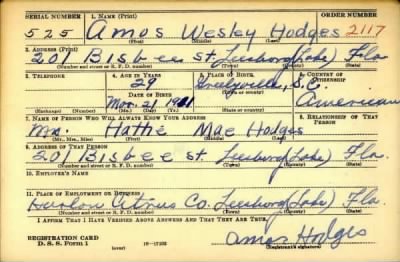 SERIAL NUMBER 1. NAME (Print) ORDER NUMBER
525 Amos Wesley Hodges 2117
(First) (Middle) (Last)
2. ADDRESS (Print)
201 Bisbee st. Leesburg (Lake) Fla
(Number and street or R. F. D. number) (Town) (County) (State)
3. TELEPHONE 4. AGE IN YEARS 5. PLACE OF BIRTH 6. COUNTRY OF CITIZENSHIP
29
DATE OF BIRTH (Town or county)
Mar. 21 S.C. American
(Exchange) (Number) (Mo.) (Day) (Yr.) (State or country)
7. NAME OF PERSON WHO WILL ALWAYS KNOW YOUR ADDRESS 8. RELATIONSHIP OF THAT PERSON
Hattie Mae Hodges
(Mr., Mrs., Miss) (First) (Middle) (Last)
9. ADDRESS OF THAT PERSON
201 Bisbee st. Leesburg (Lake) Fla.
(Number and street or R. F. D. number) (Town) (County) (State)
10. EMPLOYER'S NAME
11. PLACE OF EMPLOYMENT OR BUSINESS
Citrus Co. Leesburg (Lake) Fla.
(Number and street or R. F. D. number) (Town) (County) (State)
I AFFIRM THAT I HAVE VERIFIED ABOVE ANSWERS AND THAT THEY ARE TRUE.
REGISTRATION CARD
D. S. S. Form 1 (over) 16—17105 Amos Hodges
(Registrant's signature)